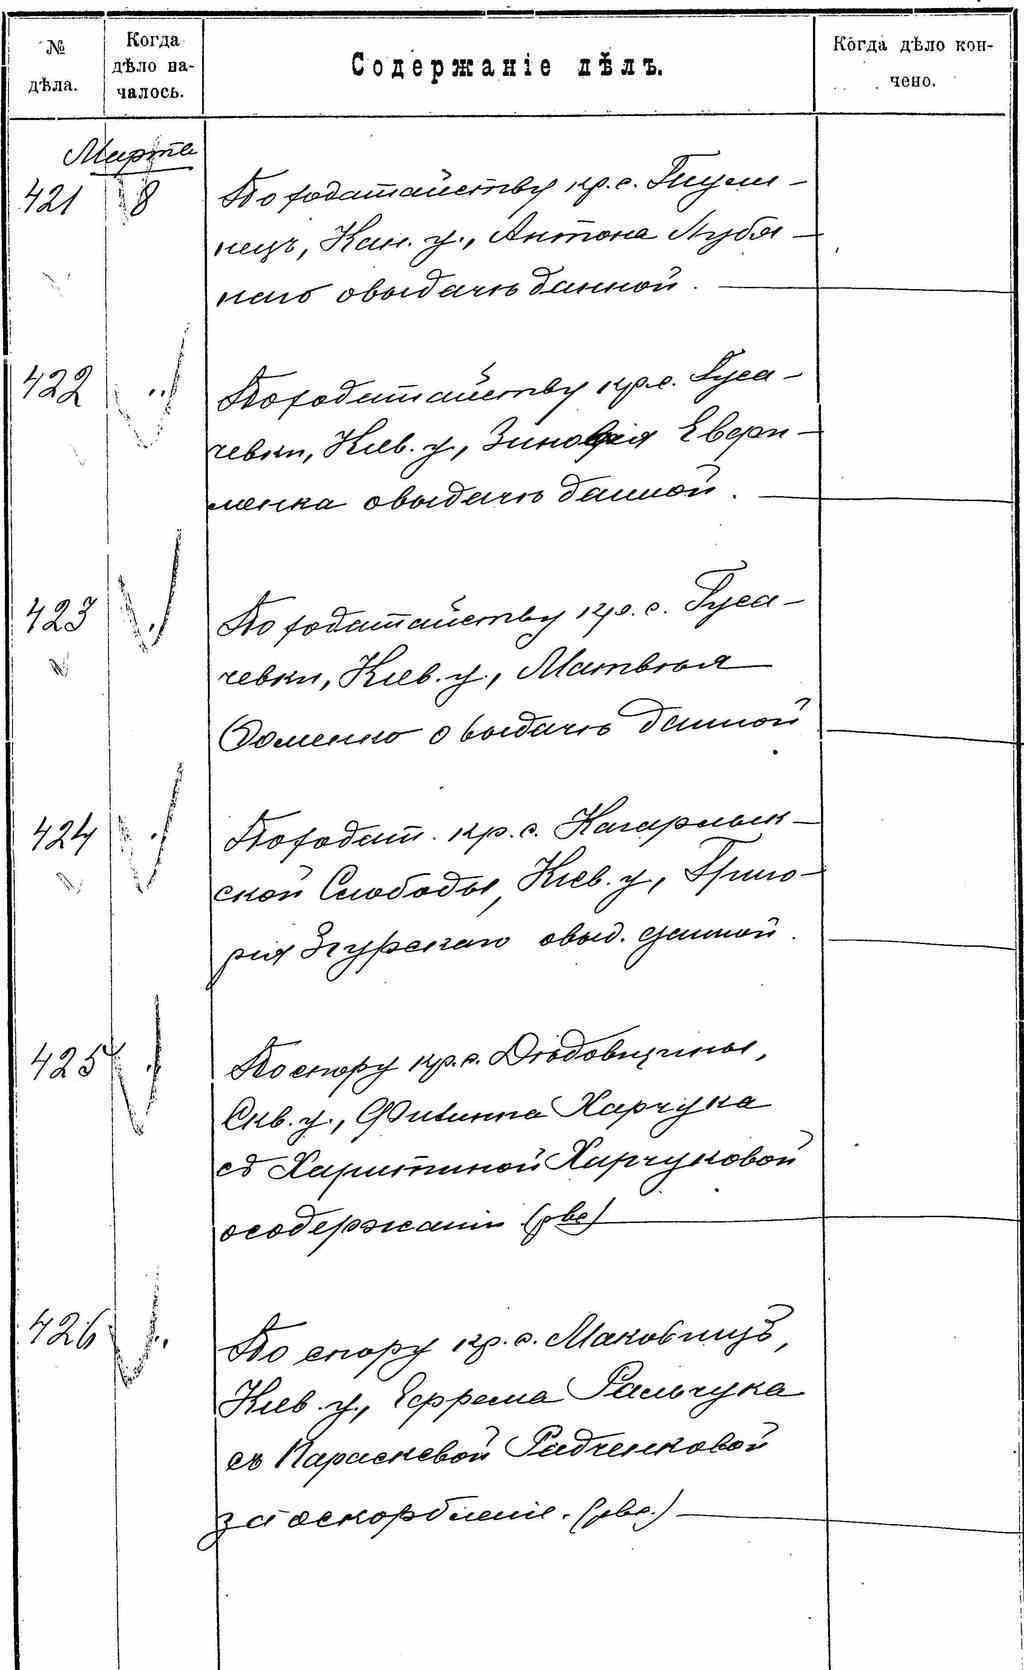 № дѣла.
Когда дѣло на-
чалось.
Содержаніе дѣлъ.
Когда дѣло кон-
чено.
Марта
421 8 По ходатайству кр. с. Пгули-
нецъ, Кан. у., Антона Лубян-
наго о выдачѣ данной.
422 По ходатайству кр. с. Гуса-
чевки, Кіев. у., Зиновія Еври-
менка о выдачѣ данной.
423 По ходатайству кр. с. Гуса-
чевки, Кіев. у., Матвѣя
Фоменко о выдачѣ данной
424 По ходат. кр. с. Кагарлык-
ской Слободы, Кіев. у., Григо-
рія Згурскаго о выд. данной.
425 По спору кр. с. Дюдовщины,
Скв. у., Филиппа Харчука
съ Харитиной Харчуковой
о содержаніи
426 По спору кр. с. Маковищъ,
Кіев. у., Ефрема Ральчука
съ Параскевой Радченковой
за оскорбленіе.